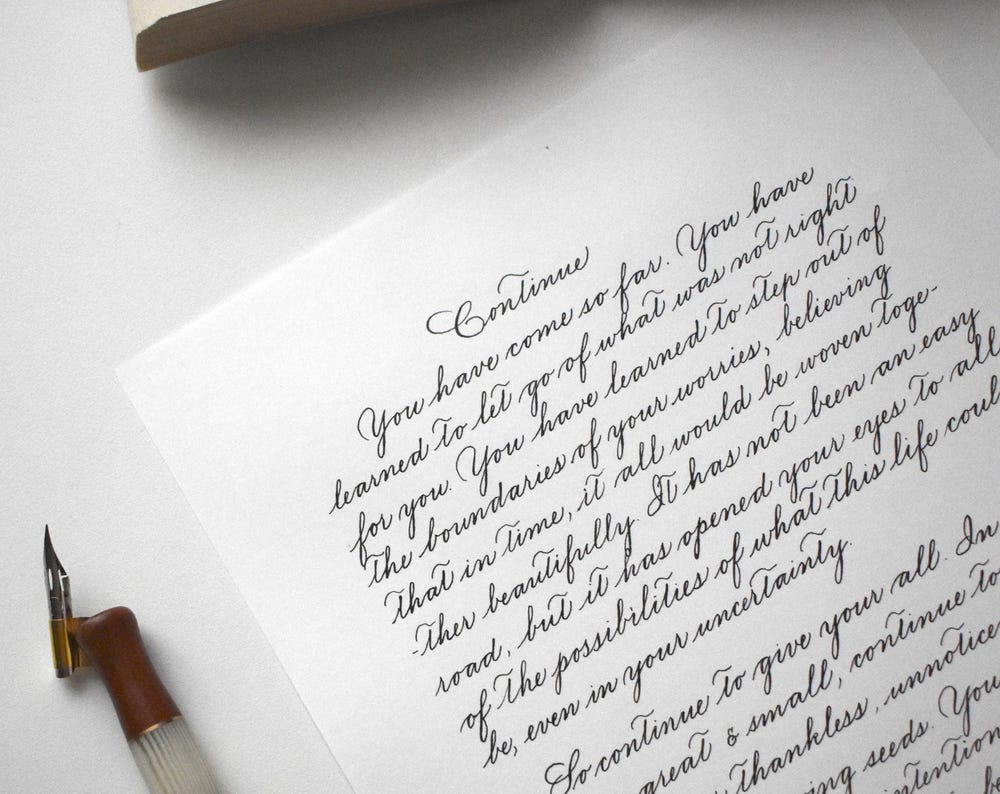 Continue
You have come so far. You have
learned to let go of what was not right
for you. You have learned to step out of
the boundaries of your worries, believing
that in time, it all would be woven toge-
-ther beautifully. It has not been an easy
road, but it has opened your eyes to all
of the possibilities of what this life coul
be, even in your uncertainty.
So continue to give your all. In
great & small, continue to
, thankless, unnotice
ing seeds. You
intention
be